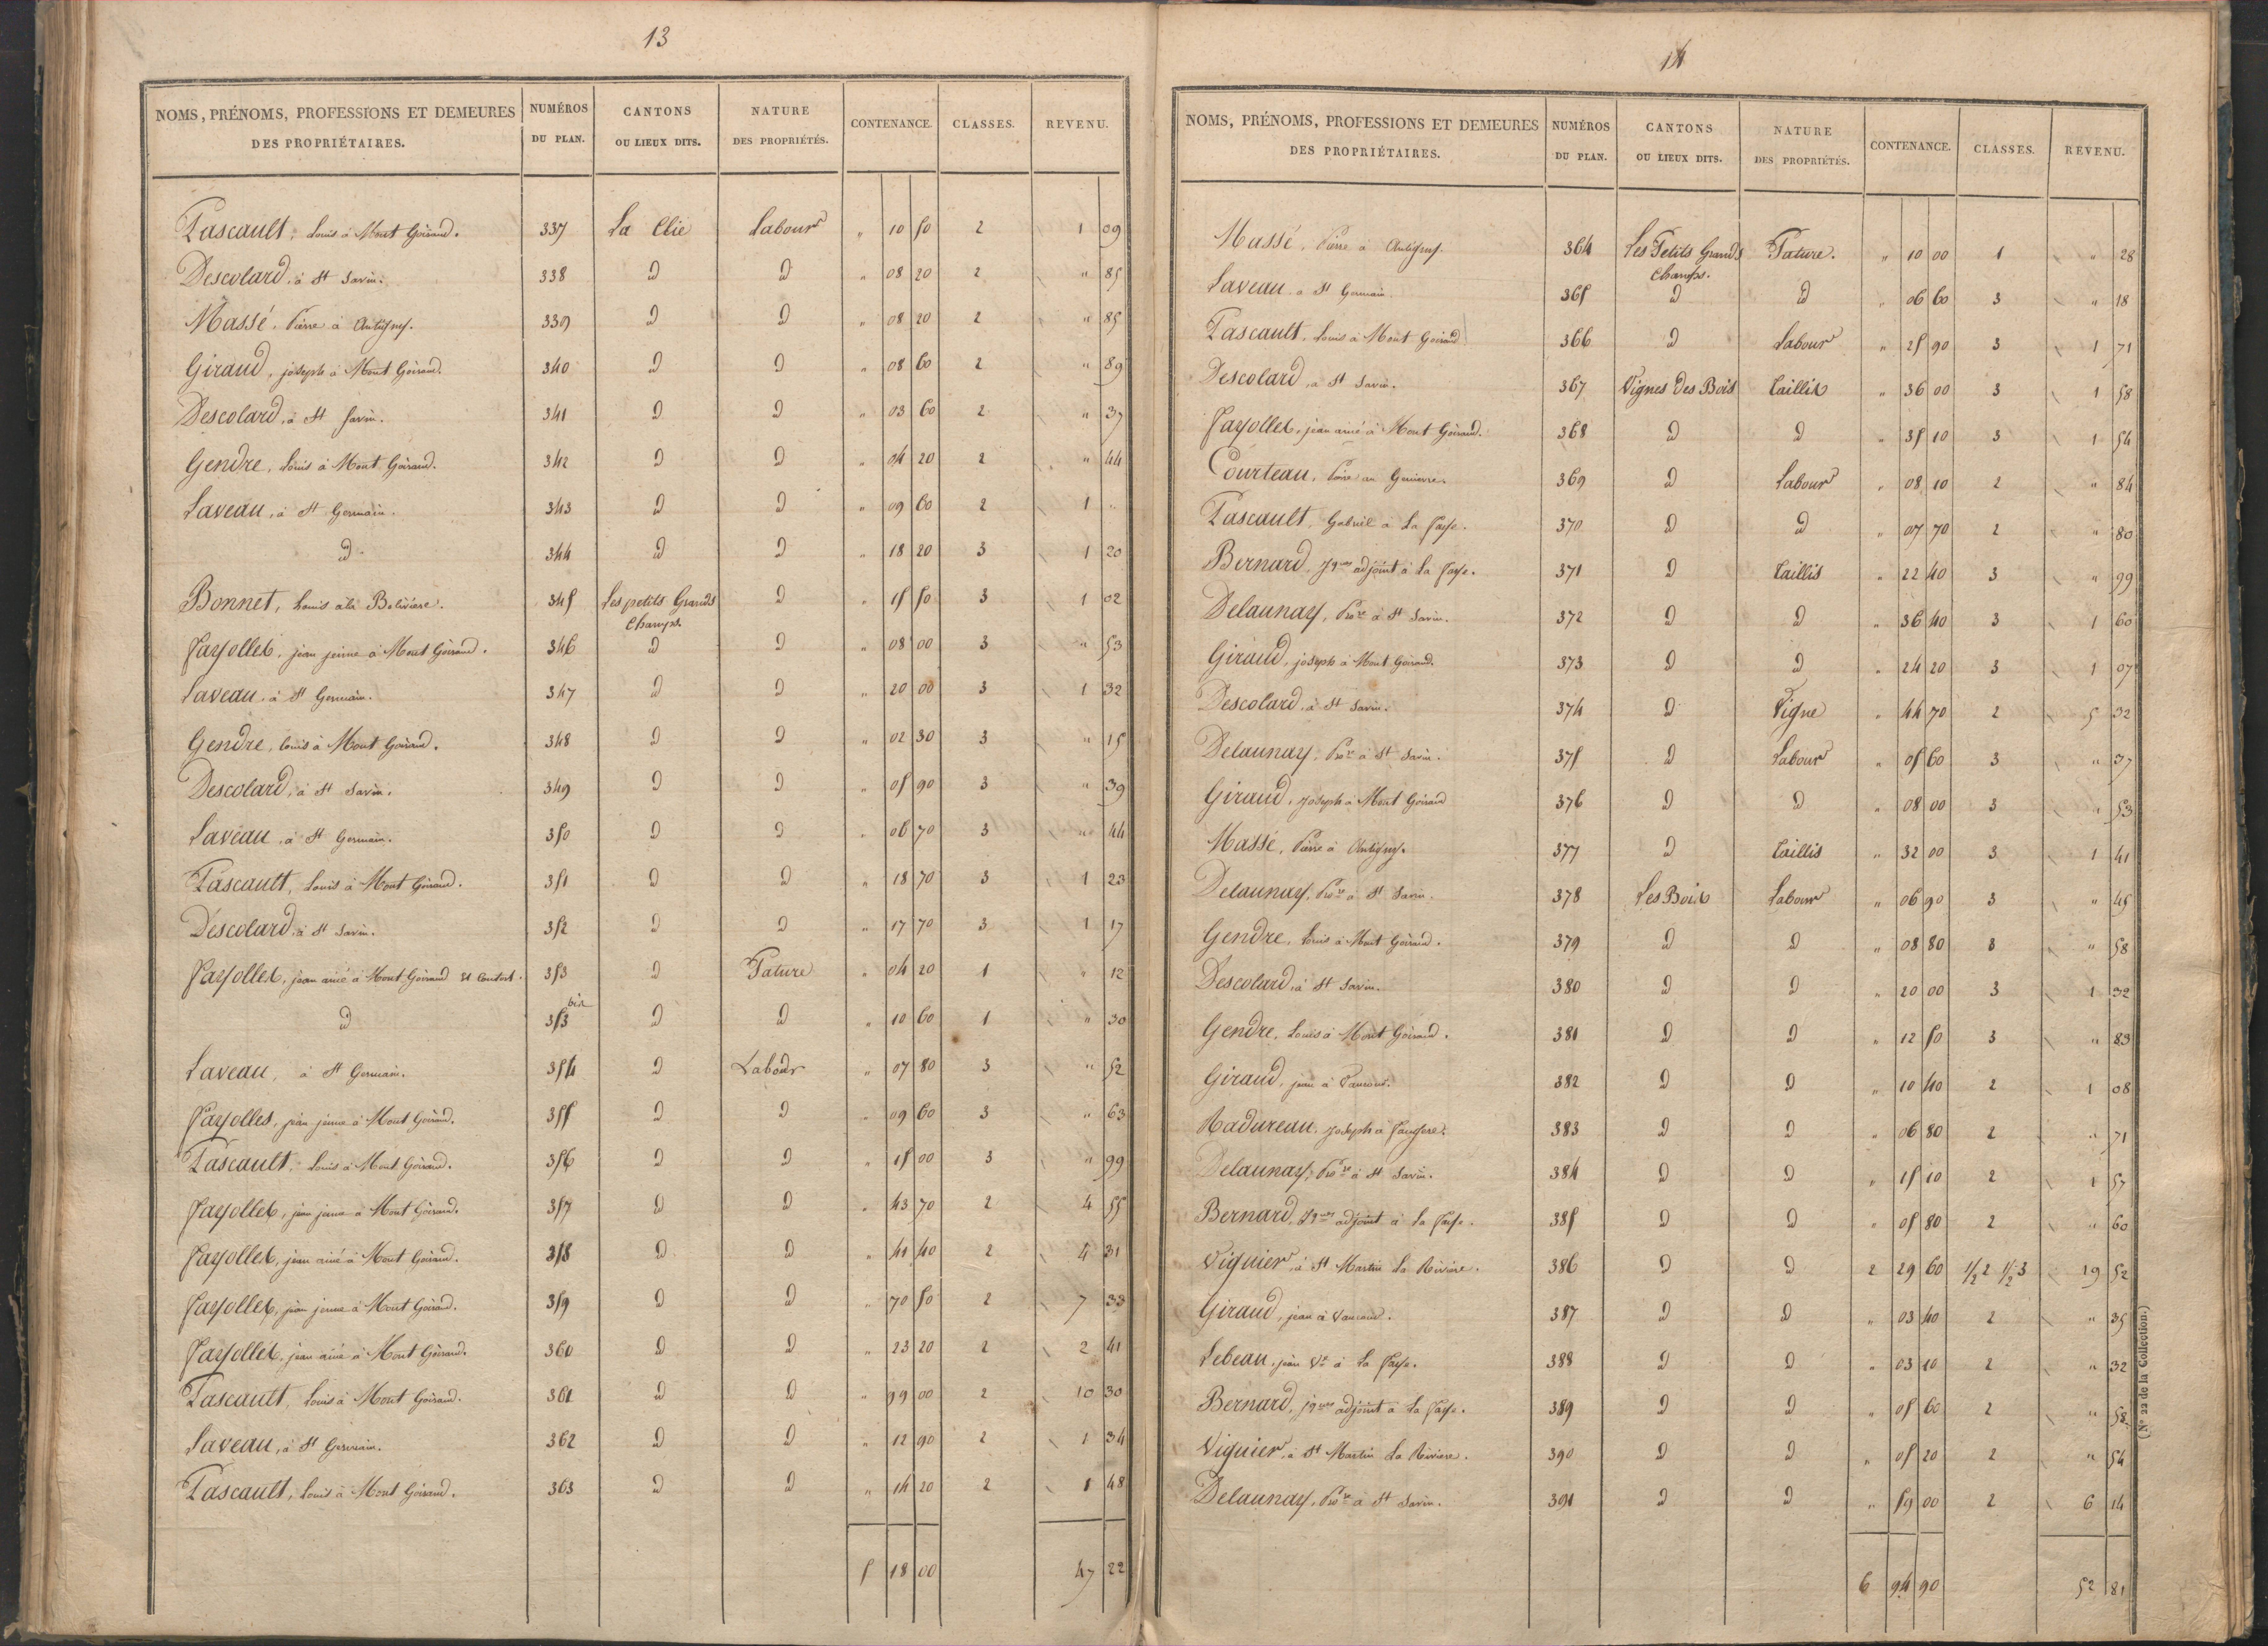 13
NOMS, PRÉNOMS, PROFESSIONS ET DEMEURES DES PROPRIÉTAIRES. NUMÉROS DU PLAN. CANTONS OU LIEUX DITS. NATURE DES PROPRIÉTÉS. CONTENANCE. CLASSES. REVENU.
Pascault, Louis à Mont Goirand. 337 La Clie Labour " 10 50 2 1 09
Descolard, à St Savin. 338 D D " 08 20 2 " 85
Massé, Pierre à Antigny. 339 D D " 08 20 2 " 85
Giraud, joseph à Mont Goirand. 340 D D " 08 60 2 " 89
Descolard, à St Savin. 341 D D " 03 60 2 " 37
Gendre, Louis à Mont Goirand. 342 D D " 04 20 2 " 44
Laveau, à St Germain. 343 D D " 09 60 2 1 "
D 344 D D " 18 20 3 1 20
Bonnet, Louis à la Bolivière. 345 Les petits Grands Champs. D " 15 50 3 1 02
Fayolles, jean jeune à Mont Goirand. 346 D D " 08 00 3 " 53
Laveau, à St Germain. 347 D D " 20 00 3 1 32
Gendre, Louis à Mont Goirand. 348 D D " 02 30 3 " 15
Descolard, à St Savin. 349 D D " 05 90 3 " 39
Laveau, à St Germain. 350 D D " 06 70 3 " 44
Pascault, Louis à Mont Goirand. 351 D D " 18 70 3 1 23
Descolard, à St Savin. 352 D D " 17 70 3 1 17
Fayolles, jean ainé à Mont Goirand et Consort. 353 D Pature " 04 20 1 " 12
D 353 bis D D " 10 60 1 " 30
Laveau, à St Germain. 354 D Labour " 07 80 3 " 52
Fayolles, jean jeune à Mont Goirand. 355 D D " 09 60 3 " 63
Pascault, Louis à Mont Goirand. 356 D D " 15 00 3 " 99
Fayolles, jean jeune à Mont Goirand. 357 D D " 43 70 2 4 55
Fayolles, jean ainé à Mont Goirand. 358 D D " 41 40 2 4 31
Fayolles, jean jeune à Mont Goirand. 359 D D " 70 50 2 7 33
Fayolles, jean ainé à Mont Goirand. 360 D D " 23 20 2 2 41
Pascault, Louis à Mont Goirand. 361 D D " 99 00 2 10 30
Laveau, à St Germain. 362 D D " 12 90 2 1 34
Pascault, Louis à Mont Goirand. 363 D D " 14 20 2 1 48
5 18 00 47 22
14
NOMS, PRÉNOMS, PROFESSIONS ET DEMEURES DES PROPRIÉTAIRES. NUMÉROS DU PLAN. CANTONS OU LIEUX DITS. NATURE DES PROPRIÉTÉS. CONTENANCE. CLASSES. REVENU.
Massé, Pierre à Antigny. 364 Les Petits Grands Champs. Pature. " 10 00 1 " 28
Laveau à St Germain 365 D D " 06 60 3 " 18
Pascault, Louis à Mont Goirand 366 D Labour " 25 90 3 1 71
Descolard, à St Savin. 367 Vignes des Bois Taillis " 36 00 3 1 58
Fayolles, jean ainé à Mont Goirand. 368 D D " 35 10 3 1 54
Courteau, Pierre au 369 D Labour " 08 10 2 " 84
Pascault, Gabriel à La Faye. 370 D D " 07 70 2 " 80
Bernard, Jques adjoint à La Faye. 371 D Taillis " 22 40 3 " 99
Delaunay, Prore à St Savin. 372 D D " 36 40 3 1 60
Giraud, joseph à Mont Goirand. 373 D D " 24 20 3 1 07
Descolard, à St Savin. 374 D Vigne " 44 70 2 5 32
Delaunay, Prore à St Savin. 375 D Labour " 05 60 3 " 37
Giraud, Joseph à Mont Goirand 376 D D " 08 00 3 " 53
Massé, Pierre à Antigny. 377 D Taillis " 32 00 3 1 41
Delaunay, Prore à St Savin. 378 Les Bois Labour " 06 90 3 " 45
Gendre, Louis à Mont Goirand. 379 D D " 08 80 3 " 58
Descolard, à St Savin. 380 D D " 20 00 3 1 32
Gendre, Louis à Mont Goirand. 381 D D " 12 50 3 " 83
Giraud, jean à 382 D D " 10 40 2 1 08
Radureau, Joseph à 383 D D " 06 80 2 " 71
Delaunay, Prore à St Savin. 384 D D " 15 10 2 1 57
Bernard, Jques adjoint à La Faye. 385 D D " 05 80 2 " 60
Viguier, à St Martin La Rivière. 386 D D 2 29 60 1/2 2 1/2 3 19 52
Giraud, jean à 387 D D " 03 40 2 " 35
Lebeau, jean Ve à La Faye. 388 D D " 03 10 2 " 32
Bernard, jques adjoint à La Faye. 389 D D " 05 60 2 " 58
Viguier, à St Martin La Rivière. 390 D D " 05 20 2 " 54
Delaunay, Prore à St Savin. 391 D D " 59 00 2 6 14
6 94 90 52 81
(N° 22 de la Collection.)